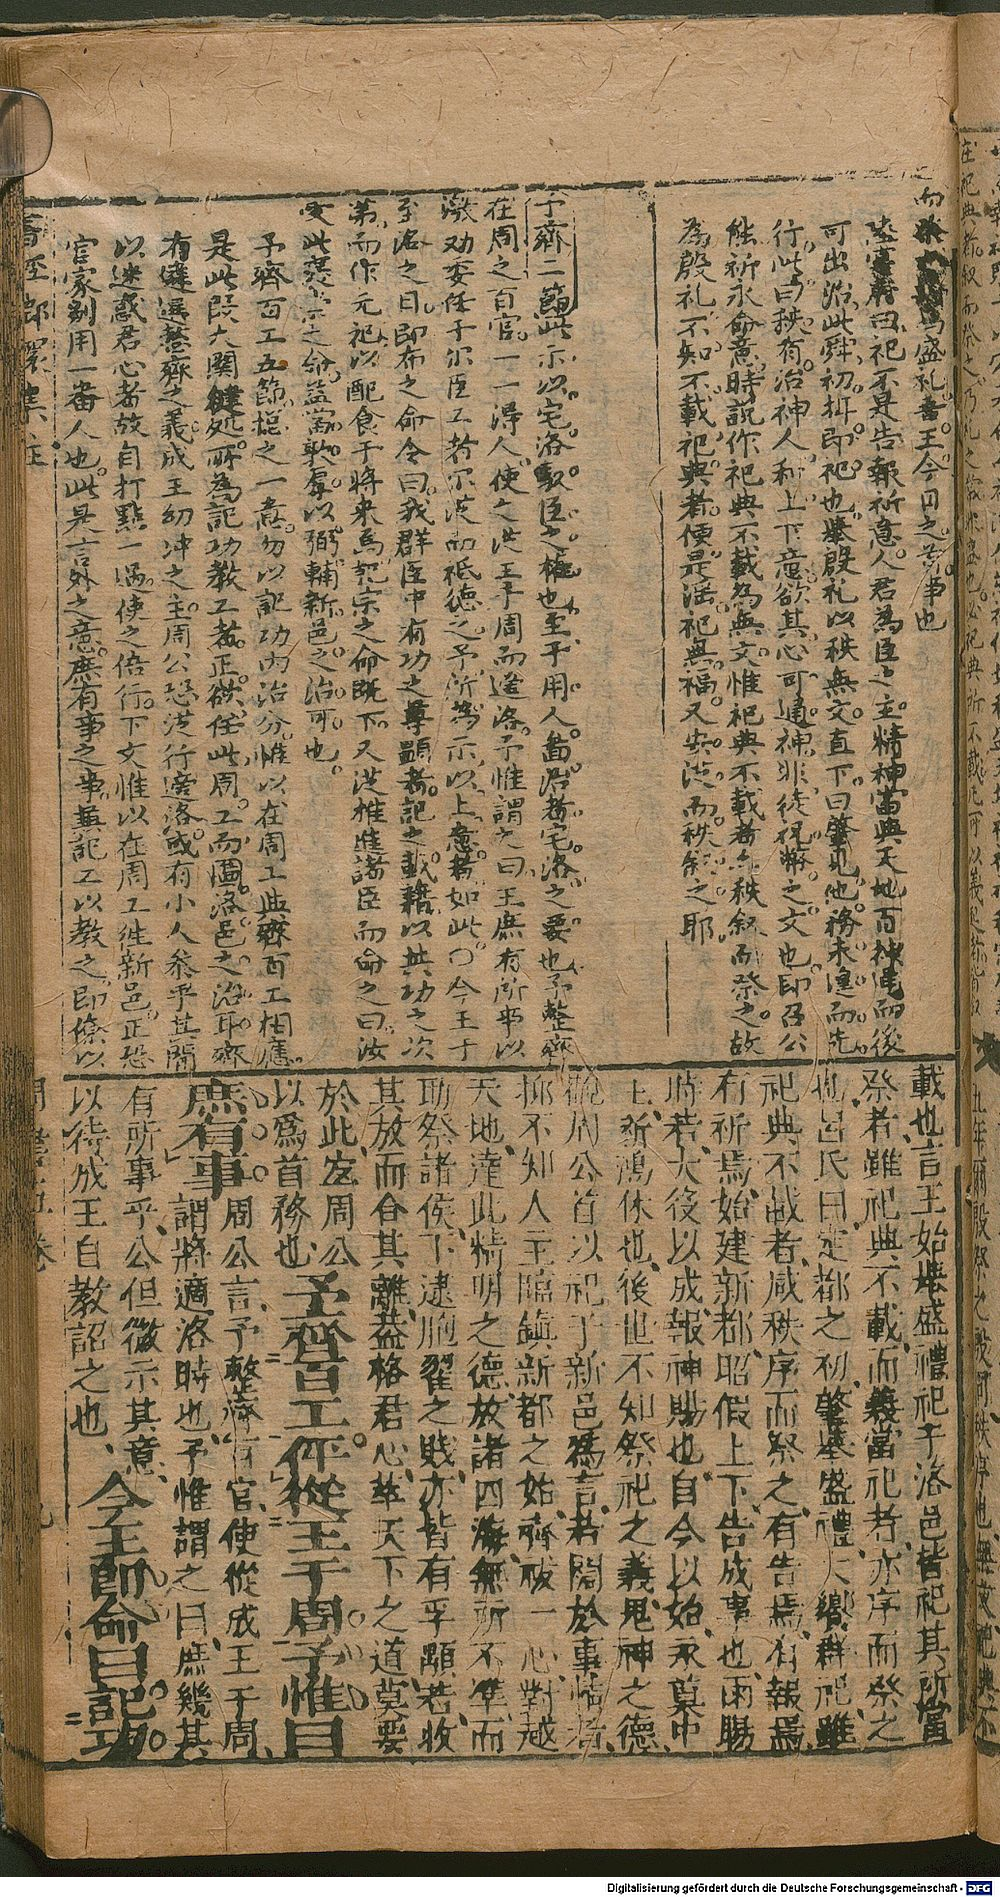 可出治此舜初揖即祀也肇殷礼以秩無文直下曰肇也他務未遑而先
行此曰秩有治神人和上下意欲其心可通神非徒祝幣之文也即召公
能祈永命意時說作祀典不載為無文惟祀典不載者亦秩叙而祭之故
為殷礼不知不載祀典者便是淫祀無福又安從而秩叙之耶
予齊二節此示以宅洛馭臣之權也至于用人啚治者宅洛之要也予整齊
在周之百官一一得人使之從王于周而適洛予惟謂之曰王庶有所事以
激劝委任于尔臣工者尔從而祗德之予所為示以上意者如此〇今王于
至洛之日即布之命令曰我群臣中有功之尊顯者記之載籍以其功之次
第而作元祀以配食于將來為記宗之命既下又從推進諸臣而命之曰汝
受此褒崇之命益當敦厚以弼輔新邑之治可也
予齊百工五節摠之一意勿以記功內治分惟以在周工與齊百工相應
是此段大關鍵処所為記功教工者正欲任此周工而圖洛邑之治耳齊
有遴選整齊之義成王幼冲之主周公恐從行遷洛或有小人參乎其間
以迷惑君心者故自打點一過使之偕行下文惟以在周工徃新邑正恐
官家别用一番人也此是言外之意庶有事之事兼記工以教之即條以
載也言王始舉盛禮祀于洛邑皆祀其所當
祭者雖祀典不載而義當祀者亦序而祭之
也呂氏曰定都之初肇舉盛禮大饗群祀雖
祀典不載者咸秩序而祭之有告焉有報焉
有祈焉始建新都昭假上下告成事也雨暘
時若大役以成報神賜也自今以始永奠中
土祈鴻休也後世不知祭祀之義鬼神之德
觀周公首以祀于新邑爲言若闊於事情者
抑不知人主臨鎮新都之始齊祓一心對越
天地達此精明之德放諸四海無所不準而
助祭諸侯下逮胞翟之賤亦皆有孚顒若收
其放而合其離蓋格君心萃天下之道莫要
於此宜周公
以爲首務也予齊百工伻從王于周予惟曰
庶有事周公言予整齊百官使從成王于周
謂將適洛時也予惟謂之曰庶幾其
有所事乎公但微示其意
以待成王自教詔之也今王即命曰記功
書經郎㻞集註
周書五卷
九
Digitalisierung gefördert durch die Deutsche Forschungsgemeinschaft - DFG